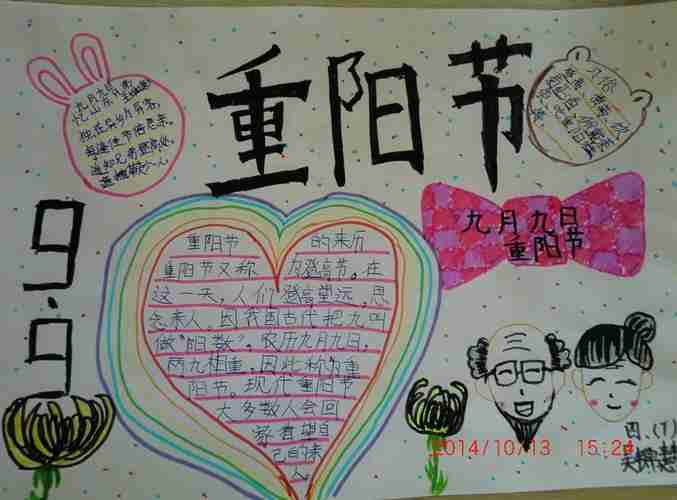 重阳节
九月九日
忆山东兄弟
独在异乡为异客，
每逢佳节倍思亲。
遥知兄弟登高处，
遍插茱萸少一人。
九月九日
重阳节
9.9
重阳节 的来历
重阳节又称为登高节。在
这一天，人们登高望远，思
念亲人。因我国古代把九叫
做“阳数”，农历九月九日，
两九相重，因此称为重
阳节。现代重阳节
大多数人会回
家看望自
己的亲
人。
四、(7)
2014/10/13 15:24